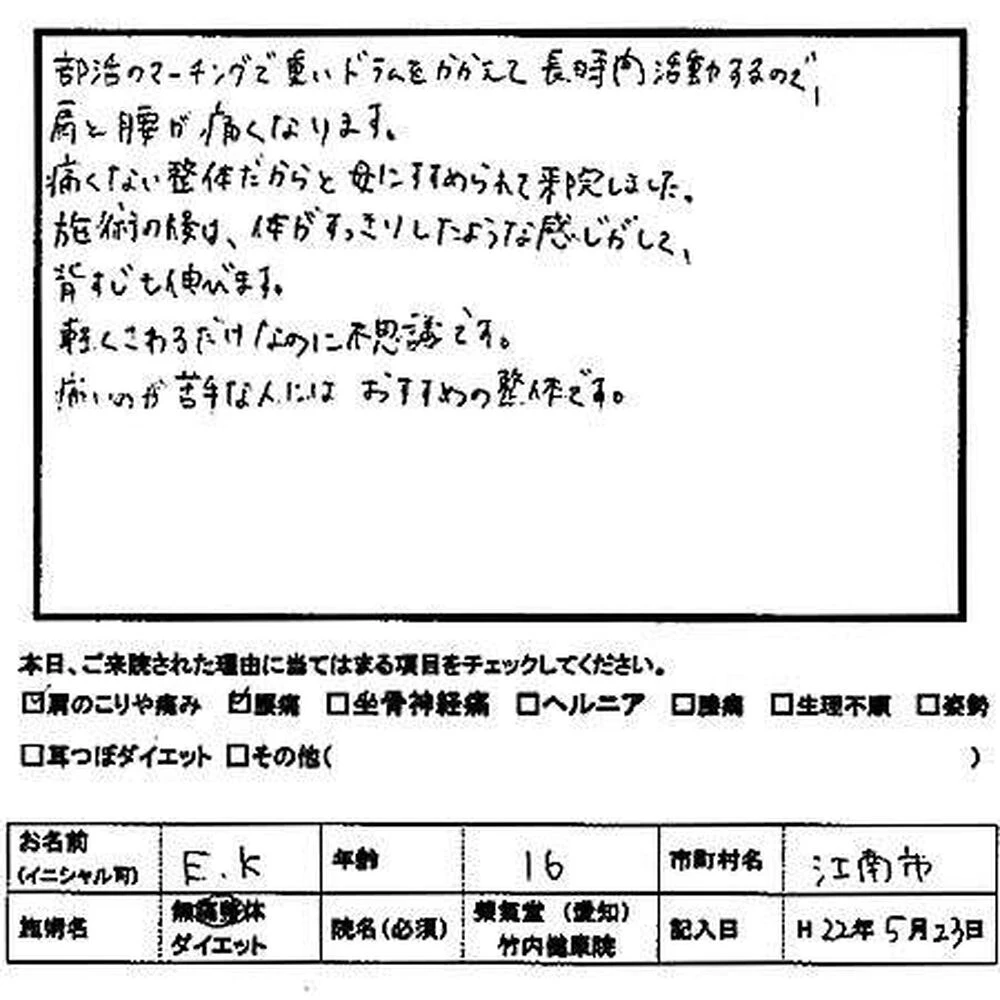 部活のマーチングで重いドラムをかかえて長時間活動するので、
肩と腰が痛くなります。
痛くない整体だからと母にすすめられて来院しました。
施術の後は、体がすっきりしたような感じがして、
背すじも伸びます。
軽くさわるだけなのに不思議です。
痛いのが苦手な人には おすすめの整体です。
本日、ご来院された理由に当てはまる項目をチェックしてください。
☑肩のこりや痛み ☑腰痛 □坐骨神経痛 □ヘルニア □膝痛 □生理不順 □姿勢
□耳つぼダイエット □その他( )
お名前 (イニシャル可) E.K 年齢 16 市町村名 江南市
施術名 無痛整体 ダイエット 院名(必須) 楽氣堂 (愛知) 竹内健康院 記入日 H 22年 5月23日